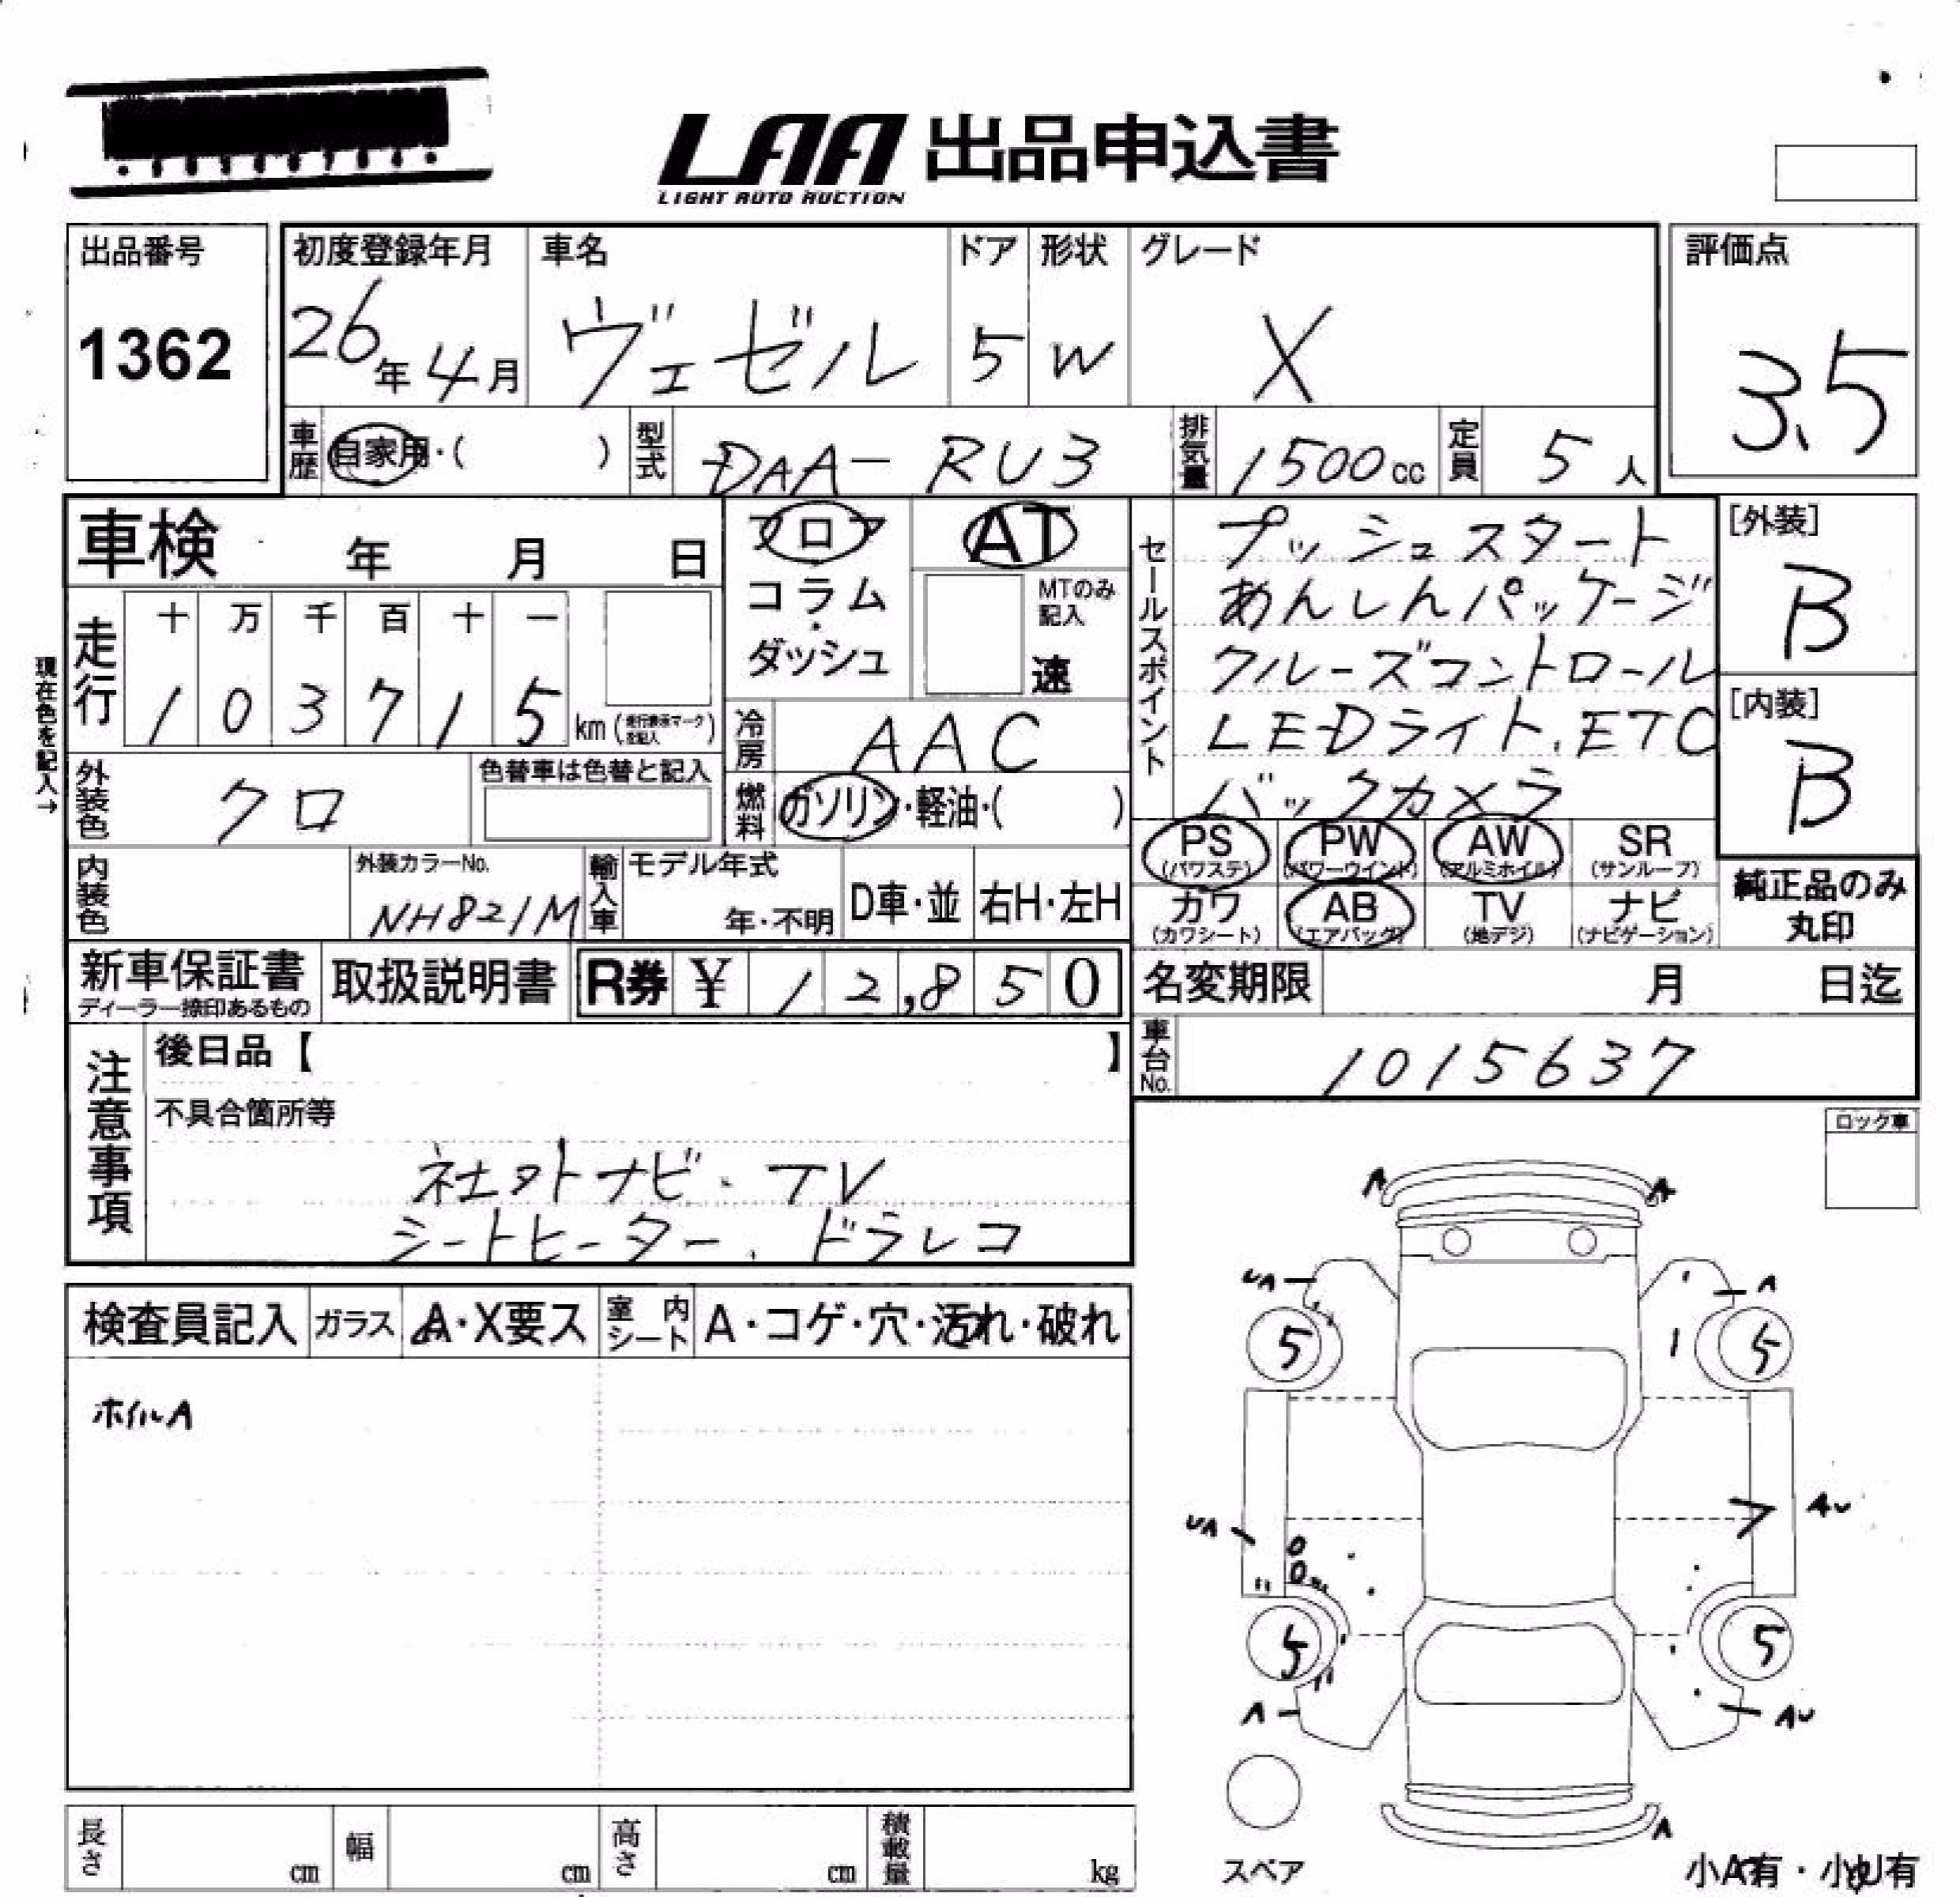 LAA 出品申込書
LIGHT AUTO AUCTION
出品番号
1362
初度登録年月
26年4月
車名
ヴェゼル
ドア
5
形状
W
グレード
X
評価点
3.5
車歴 自家用・( )
型式 DAA-RU3
排気量 1500cc
定員 5人
車検 年 月 日
フロア
コラム
・
ダッシュ
AT
MTのみ
記入
速
セールスポイント
プッシュスタート
あんしんパッケージ
クルーズコントロール
LEDライト、ETC
バックカメラ
[外装]
B
[内装]
B
現在色を記入→
走行
十 万 千 百 十 一
1 0 3 7 1 5 km (走行表示マークを記入)
冷房 AAC
外装色 クロ
色替車は色替と記入
燃料 ガソリン・軽油・( )
内装色
外装カラーNo.
NH821M
輸入車
モデル年式
年・不明
D車・並
右H・左H
PS (パワステ)
PW (パワーウインド)
AW (アルミホイル)
SR (サンルーフ)
カワ (カワシート)
AB (エアバッグ)
TV (地デジ)
ナビ (ナビゲーション)
純正品のみ
丸印
新車保証書
ディーラー捺印あるもの
取扱説明書
R券 ¥ 12,850
名変期限 月 日迄
車台No. 1015637
注意事項
後日品【 】
不具合箇所等
社外ナビ、TV
シートヒーター、ドラレコ
ロック車
検査員記入
ガラス A・X要ス
室内シート A・コゲ・穴・汚れ・破れ
ホイルA
A A
UA A
5 5
UA AU
5 5
A AU
A
スペア
小A有・小U有
長さ cm
幅 cm
高さ cm
積載量 kg